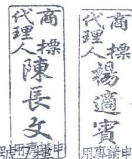 商標
代理人
楊適賓
商標
代理人
陳長文